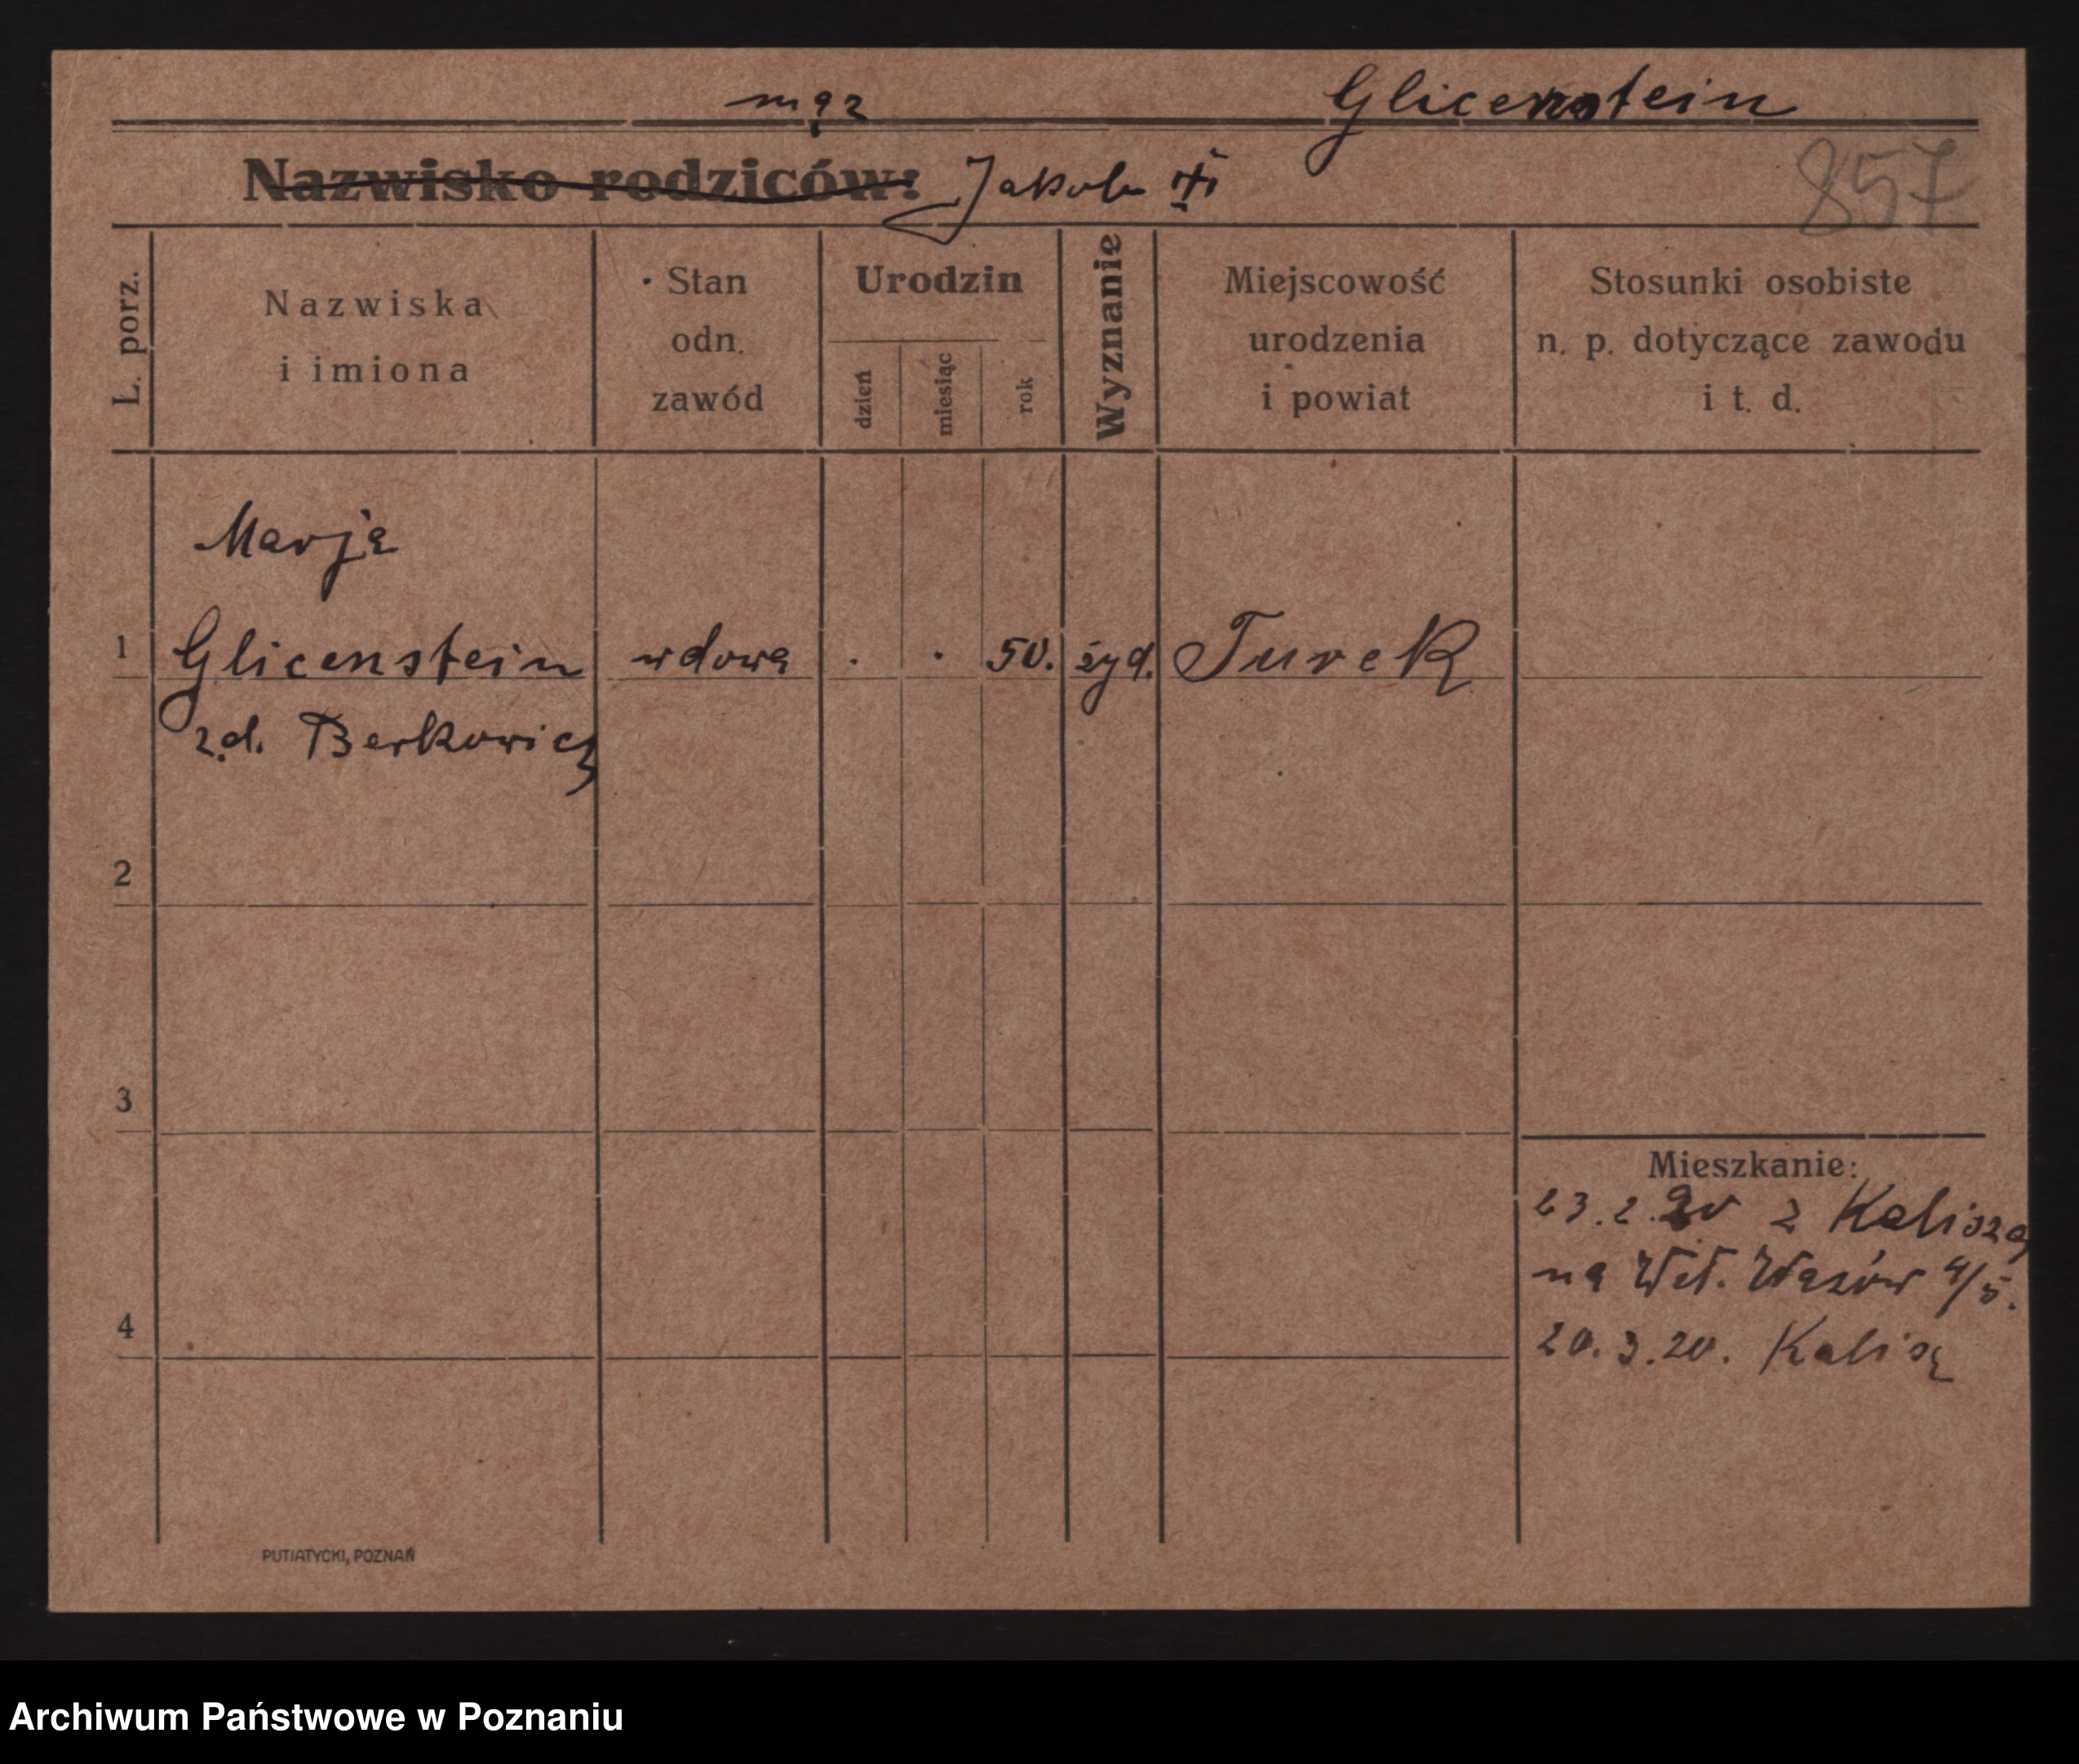 mąż Glicenstein
Nazwisko rodziców: Jakob
857
L. porz.
Nazwiska
i imiona
Stan
odn.
zawód
Urodzin
dzień
miesiąc
rok
Wyznanie
Miejscowość
urodzenia
i powiat
Stosunki osobiste
n. p. dotyczące zawodu
i t. d.
Marja
1 Glicenstein wdowa . . 50. żyd. Turek
z d. Berkowicz
2
3
4
Mieszkanie:
23.2.20 z Kalisza
na Wł. Wazów 4/5.
20.3.20. Kalisz
PUTIATYCKI, POZNAŃ
Archiwum Państwowe w Poznaniu